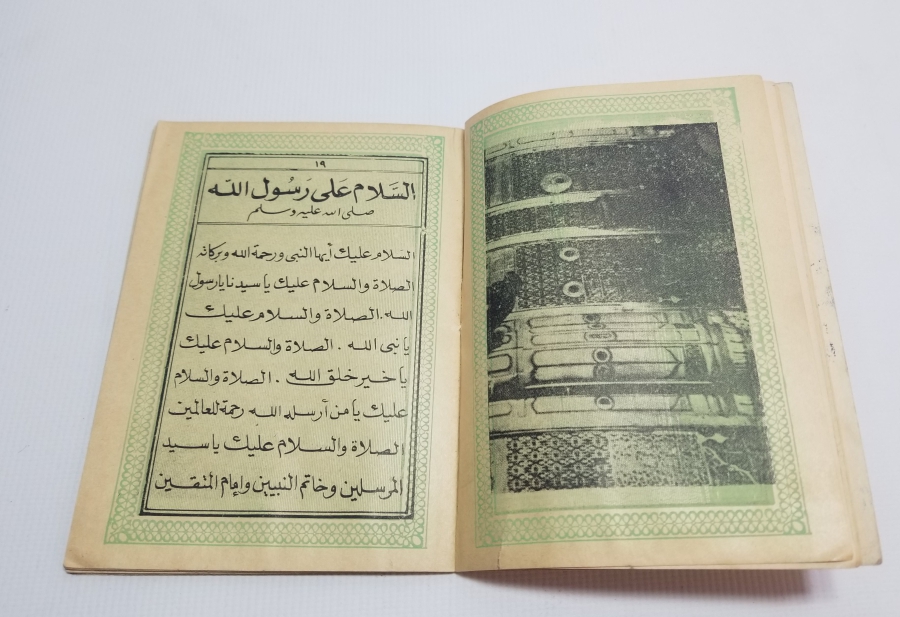 ١٩
السَّلام عَلى رَسُول الله
صلى الله عليه وسلم
السلام عليك أيها النبى ورحمة الله وبركاته
الصلاة والسلام عليك يا سيدنا يارسول
الله. الصلاة والسلام عليك
يا نبى الله . الصلاة والسلام عليك
يا خير خلق الله . الصلاة والسلام
عليك يا من أرسله الله رحمة للعالمين
الصلاة والسلام عليك ياسيد
المرسلين وخاتم النبيين وإمام المتقين